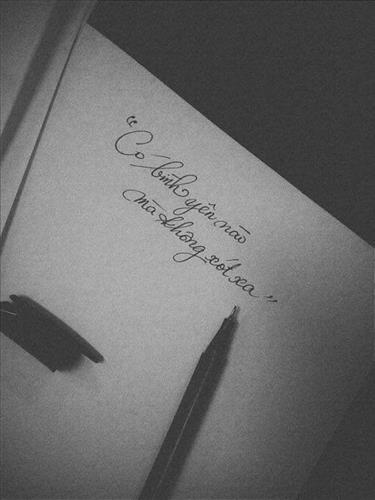 “Có bình yên nào
mà không xót xa”